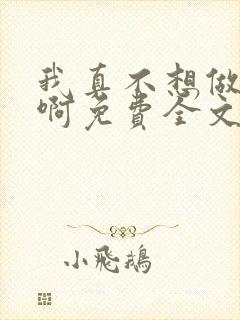 我真不想做
啊免费全文
小飛鵝